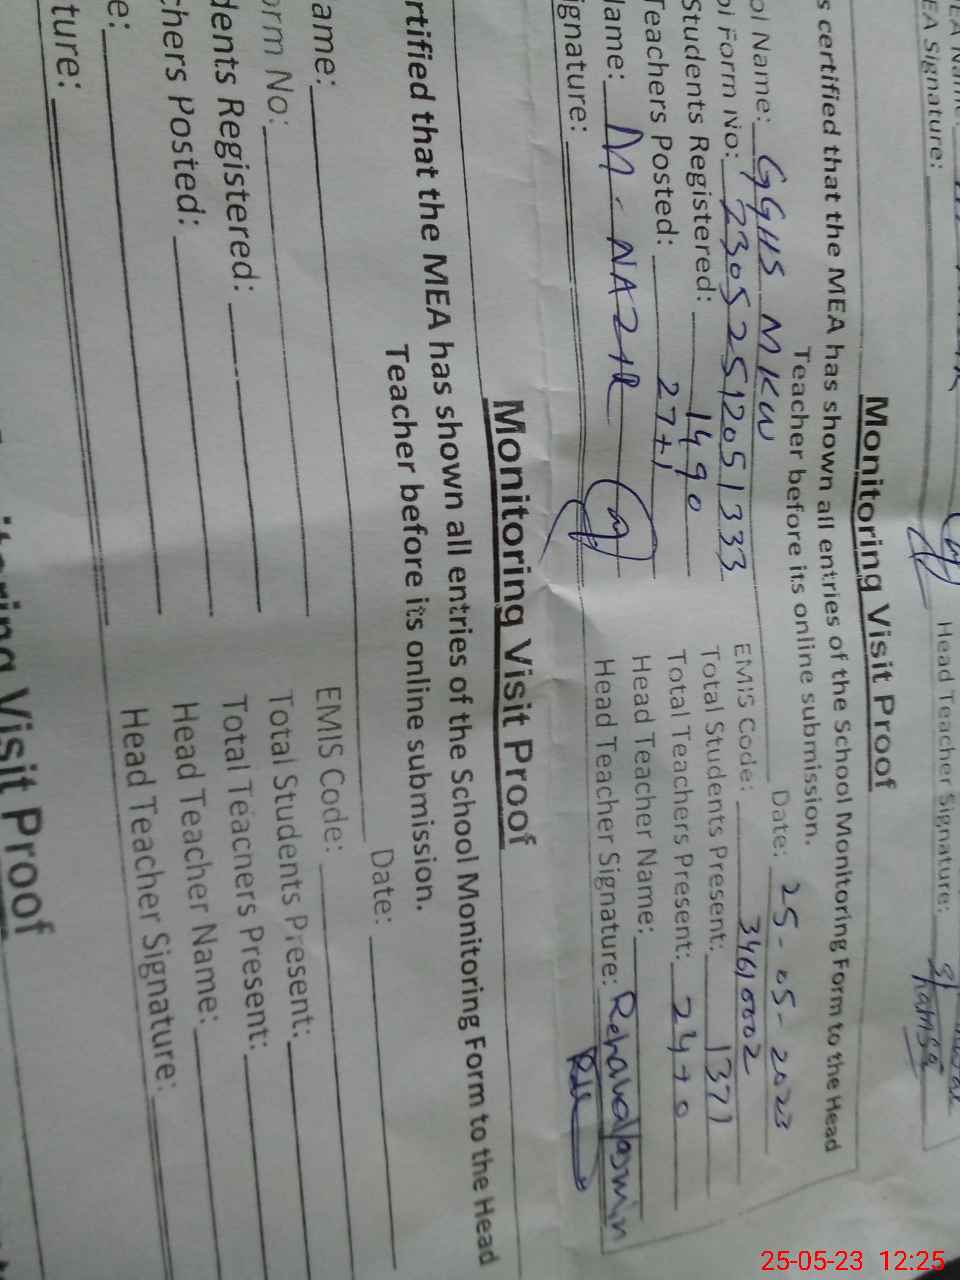 EA Signature:
Head Teacher Signature: Shamsa
Monitoring Visit Proof
s certified that the MEA has shown all entries of the School Monitoring Form to the Head
Teacher before its online submission.
Date: 25-05-2023
ol Name: GGHS MKW
EMIS Code: 34610002
oi Form No: 23052512051333
Total Students Present: 1371
Students Registered: 1490
Total Teachers Present: 24+0
Teachers Posted: 27+1
Head Teacher Name: Rehana Yasmin
lame: M. NAZIR
Head Teacher Signature:
ignature:
Monitoring Visit Proof
rtified that the MEA has shown all entries of the School Monitoring Form to the Head
Teacher before its online submission.
Date:
ame:
EMIS Code:
orm No:
Total Students Present:
dents Registered:
Total Teachers Present:
chers Posted:
Head Teacher Name:
e:
Head Teacher Signature:
ture:
itoring Visit Proof
25-05-23 12:25